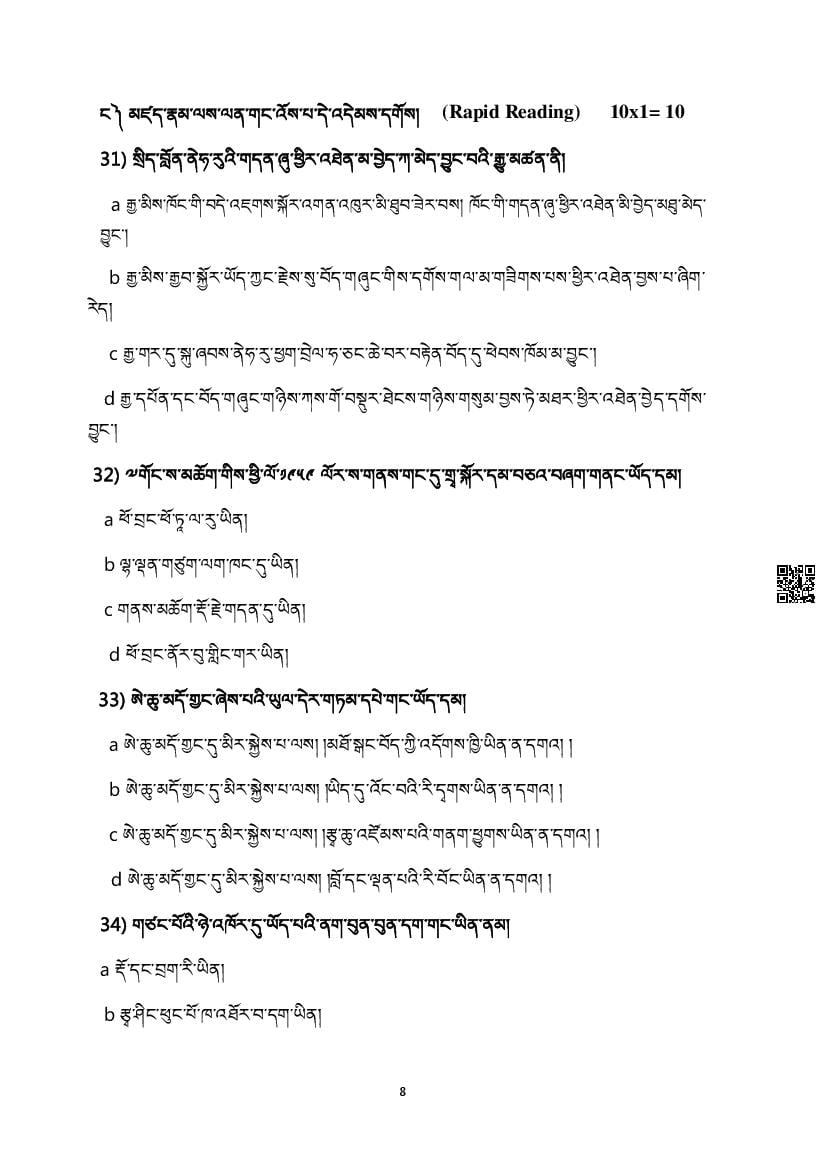 ང༽ མཛད་རྣམ་ལས་ལན་གང་འོས་པ་དེ་འདེམས་དགོས། (Rapid Reading) 10x1= 10
31) སྲིད་བློན་ནེཧ་རུའི་གདན་ཞུ་ཕྱིར་འཐེན་མ་བྱེད་ཀ་མེད་བྱུང་བའི་རྒྱུ་མཚན་ནི།
a རྒྱ་མིས་ཁོང་གི་བདེ་འཇགས་སྐོར་འགན་འཁུར་མི་ཐུབ་ཟེར་བས། ཁོང་གི་གདན་ཞུ་ཕྱིར་འཐེན་མི་བྱེད་མཐུ་མེད་
བྱུང་།
b རྒྱ་མིས་རྒྱབ་སྐྱོར་ཡོད་ཀྱང་རྗེས་སུ་བོད་གཞུང་གིས་དགོས་གལ་མ་གཟིགས་པས་ཕྱིར་འཐེན་བྱས་པ་ཞིག་
རེད།
c རྒྱ་གར་དུ་སྐུ་ཞབས་ནེཧ་རུ་ཕྱག་བྲེལ་ཧ་ཅང་ཆེ་བར་བརྟེན་བོད་དུ་ཕེབས་ཁོམ་མ་བྱུང་།
d རྒྱ་དཔོན་དང་བོད་གཞུང་གཉིས་ཀས་གོ་བསྡུར་ཐེངས་གཉིས་གསུམ་བྱས་ཏེ་མཐར་ཕྱིར་འཐེན་བྱེད་དགོས་
བྱུང་།
32) ༸གོང་ས་མཆོག་གིས་ཕྱི་ལོ་༡༩༥༩ ལོར་ས་གནས་གང་དུ་གྲྭ་སྐོར་དམ་བཅའ་བཞག་གནང་ཡོད་དམ།
a ཕོ་བྲང་པོ་ཊཱ་ལ་རུ་ཡིན།
b ལྷ་ལྡན་གཙུག་ལག་ཁང་དུ་ཡིན།
c གནས་མཆོག་རྡོ་རྗེ་གདན་དུ་ཡིན།
d ཕོ་བྲང་ནོར་བུ་གླིང་གར་ཡིན།
33) ཨེ་ཆུ་མདོ་གྱང་ཞེས་པའི་ཡུལ་དེར་གཏམ་དཔེ་གང་ཡོད་དམ།
a ཨེ་ཆུ་མདོ་གྱང་དུ་མིར་སྐྱེས་པ་ལས། །མཐོ་སྒང་བོད་ཀྱི་འདོགས་ཁྱི་ཡིན་ན་དགའ། །
b ཨེ་ཆུ་མདོ་གྱང་དུ་མིར་སྐྱེས་པ་ལས། །ཡིད་དུ་འོང་བའི་རི་དྭགས་ཡིན་ན་དགའ། །
c ཨེ་ཆུ་མདོ་གྱང་དུ་མིར་སྐྱེས་པ་ལས། །རྩྭ་ཆུ་འཛོམས་པའི་གནག་ཕྱུགས་ཡིན་ན་དགའ། །
d ཨེ་ཆུ་མདོ་གྱང་དུ་མིར་སྐྱེས་པ་ལས། །བློ་དང་ལྡན་པའི་རི་བོང་ཡིན་ན་དགའ། །
34) གཙང་པོའི་ཉེ་འཁོར་དུ་ཡོད་པའི་ནག་བུན་བུན་དག་གང་ཡིན་ནམ།
a རྡོ་དང་བྲག་རི་ཡིན།
b རྩྭ་ཤིང་ཕུང་པོ་ཁ་འཐོར་བ་དག་ཡིན།
8